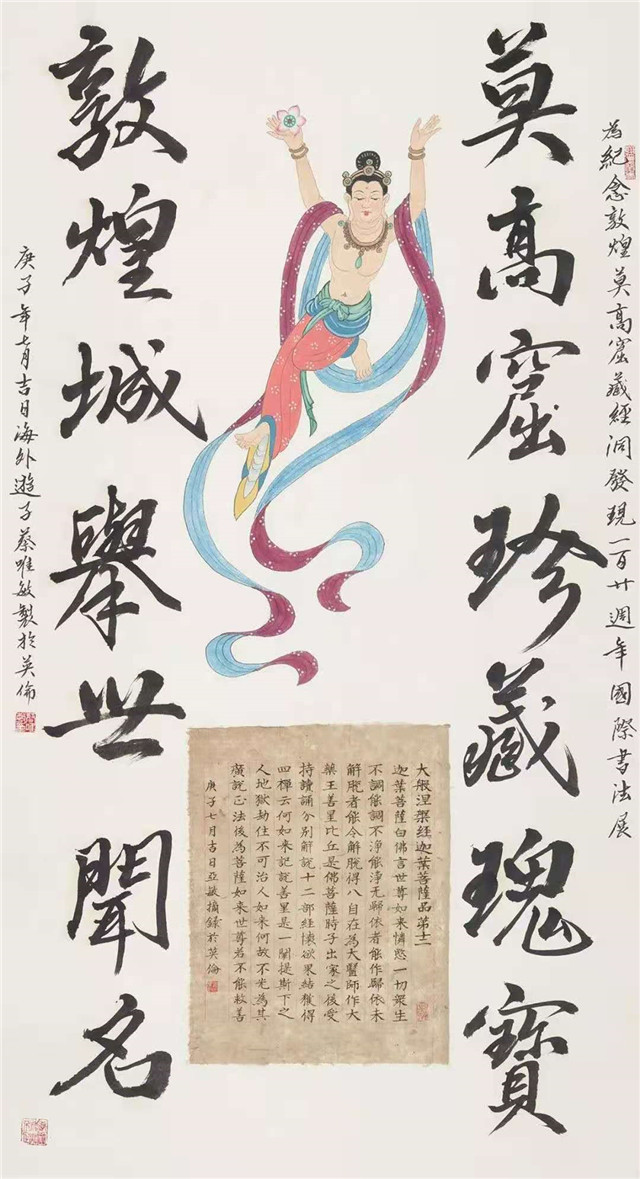 為紀念敦煌莫高窟藏經洞發現一百廿週年國際書法展
莫高窟珍藏瑰寶
大般涅槃經迦葉菩薩品第十二
迦葉菩薩白佛言世尊如来憐愍一切眾生
不調能調不淨能淨无歸依者能作歸依未
解脫者能令解脫得八自在為大醫師作大
藥王善星比丘是佛菩薩時子出家之後受
持讀誦分別解說十二部經懷欲果結獲得
四禪云何如来記說善星是一闡提斯下之
人地獄劫住不可治人如来何故不先為其
廣說正法後為菩薩如来世尊若不能救善
庚子七月吉日亞敏摘錄於英倫
敦煌城舉世聞名
庚子年七月吉日海外遊子蔡唯敏製於英倫